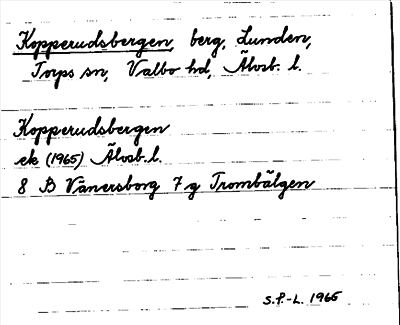 Kopperudsbergen, berg, Lunden,
Torps sn, Valbo hd, Älvsb. l.
Kopperudsbergen
ek (1965) Älvsb. l.
8 B Vänersborg 7 g Trombälgen
S.F.-L. 1965